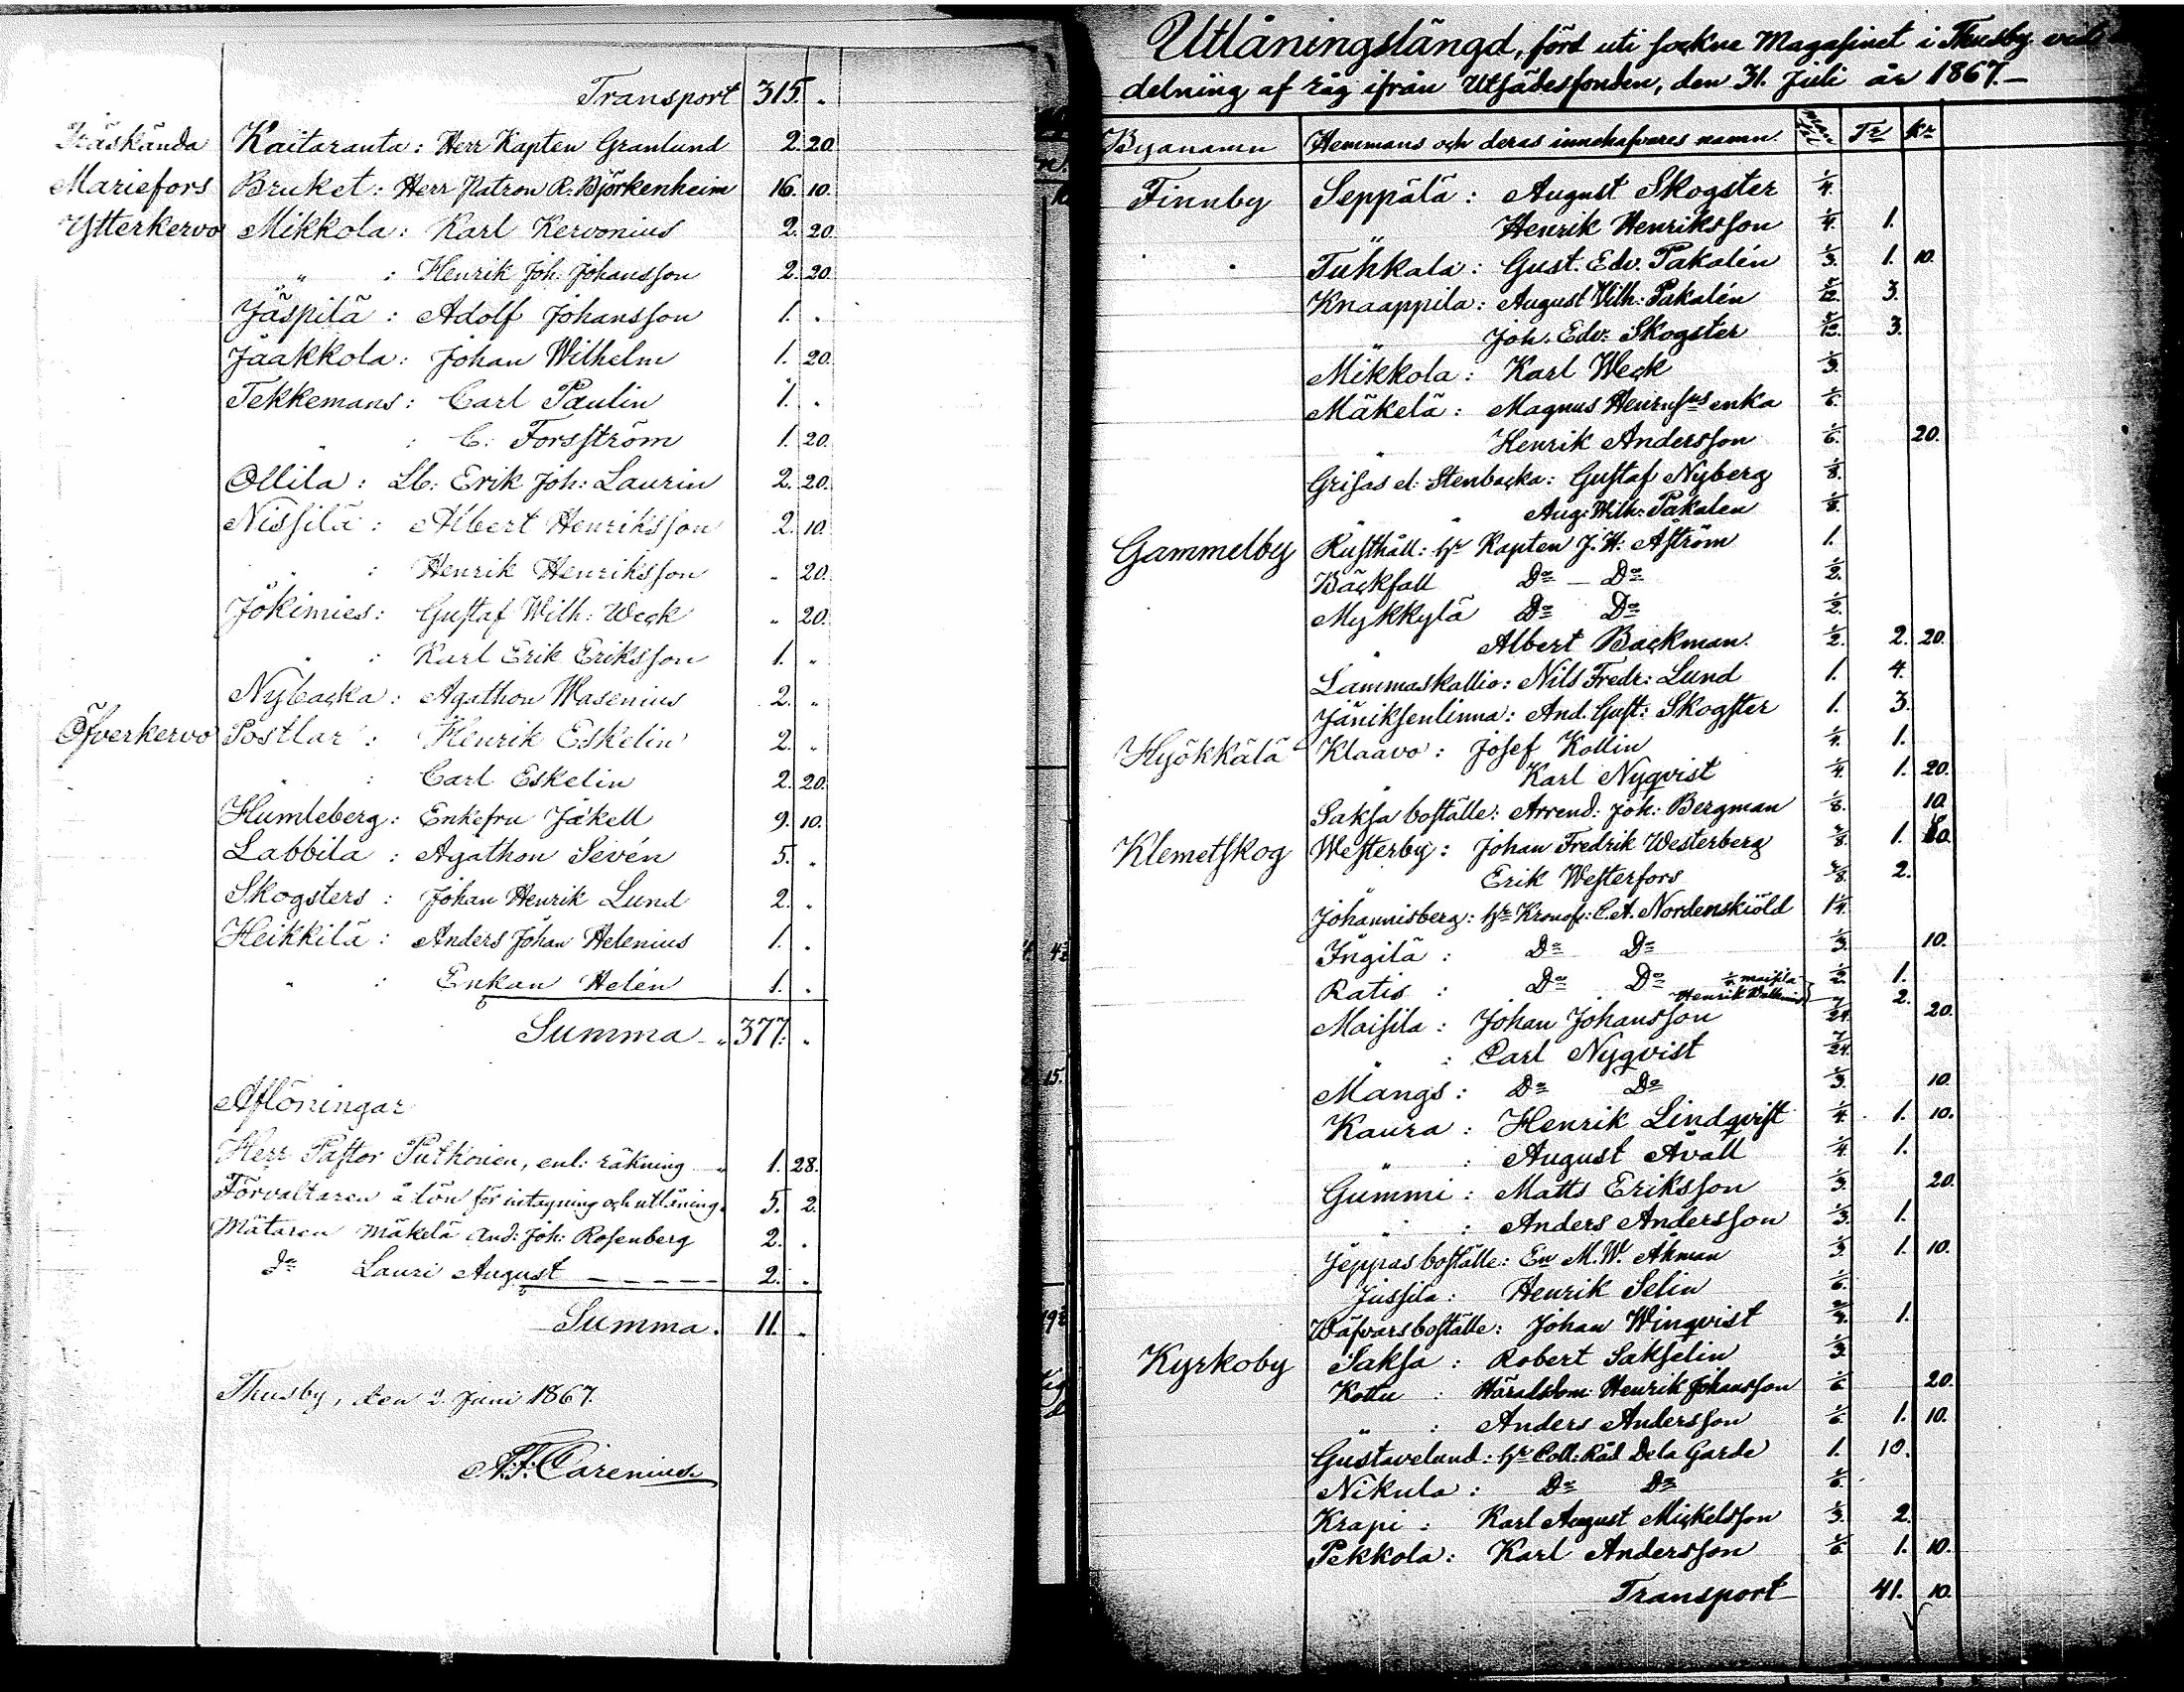 Transport 315. "
Träskända Kaitaranta: Herr Kapten Granlund 2. 20.
Mariefors Bruket: Herr Patron R. Björkenheim 16. 10.
Ytterkervo Mikkola: Karl Kervonius 2. 20.
" : Henrik Joh. Johansson 2. 20.
Jäspilä: Adolf Johansson 1. "
Jaakkola: Johan Wilhelm 1. 20.
Tekkemans: Carl Paulin 1. "
" : C. Forsström 1. 20.
Ollila: Lb: Erik Joh: Laurin 2. 20.
Nissilä: Albert Henriksson 2. 10.
" : Henrik Henriksson " 20.
Jokimies: Gustaf Wilh: Weck " 20.
" : Karl Erik Eriksson 1. "
Nybacka: Agathon Wasenius 2. "
Öfverkervo Postlar: Henrik Eskelin 2. "
" : Carl Eskelin 2. 20.
Humleberg: Enkefru Jäkell 9. 10.
Labbila: Agathon Sevén 5. "
Skogsters: Johan Henrik Lund 2. "
Heikkilä: Anders Johan Helenius 1. "
" : Enkan Helén 1. "
Summa " 377. "
Aflöningar
Herr Pastor Puthonen, enl: räkning " 1. 28.
Förvaltaren å lön för intagning och utlåning. 5. 2.
Mätaren Mäkelä And: Joh: Rosenberg 2. "
Do Lauri August - - - - 2. "
Summa. 11. "
Thusby, den 2. Juni 1867.
A.F. Carenius.
Utlåningslängd, förd uti sockne Magasinet i Thusby vid
delning af råg ifrån Utsädesfonden, den 31. Juli år 1867.-
Byanamn Hemmans och deras innehafvares namn. Tr Kr
Finnby Seppälä: August Skogster 1/4.
" Henrik Henriksson 1/4. 1.
Tuhkala: Gust. Edv. Pakalén 1/3. 1. 10.
Knaappila: August Wilh: Pakalén 5/12. 3.
" Joh. Edv: Skogster 5/12. 3.
Mikkola: Karl Weck 1/3.
Mäkelä: Magnus Henrikss enka 1/6.
" Henrik Andersson 1/6. 20.
Grisas el: Stenbacka: Gustaf Nyberg 1/8.
" Aug: Wilh: Pakalen 1/8.
Gammelby Rusthåll: Hr Kapten J. H. Åström 1.
Bäckfall Do - Do 1/2.
Mykkylä Do Do 1/2.
" Albert Backman. 1/2. 2. 20.
Lammaskallio: Nils Fredr: Lund 1. 4.
Jäniksenlinna: And. Gust: Skogster 1. 3.
Hyökkälä Klaavo: Josef Kollin 1/4. 1.
" Karl Nyqvist 1/4. 1. 20.
Saksa boställe: Arrend: Joh: Bergman 1/8. 10.
Klemetskog Westerby: Johan Fredrik Westerberg 1.
" Erik Westerfors 2.
Johannisberg: Hr Kronof: C. A. Nordenskiöld 1 1/4.
Ingilä: Do Do 1/3. 10.
Ratis: Do Do 1/2. 1.
Henrik 2.
Moisila: Johan Johansson 7/24. 20.
" : Carl Nyqvist 7/24.
Mangs: Do Do 1/3. 10.
Kaura: Henrik Lindqvist 1/4. 1. 10.
" : August Avall 1/4. 1.
Gummi: Matts Eriksson 1/3. 20.
" : Anders Andersson 1/3. 1.
Jeppas boställe: En M. W. Åhman 1/3. 1. 10.
Jussila: Henrik Selin 1/6.
Wäfvars boställe: Johan Winqvist 1.
Kyrkoby Saksa: Robert Sakselin 1/3.
Kottu: Häradsdom: Henrik Johansson 1/6. 20.
" : Anders Andersson 1/6. 1. 10.
Gustavelund: Hr Coll: Råd De la Garde 1. 10.
Nikula: Do Do 1/6.
Krapi: Karl August Mickelsson 1/3. 2.
Pekkola: Karl Andersson 1/6. 1. 10.
Transport 41. 10.